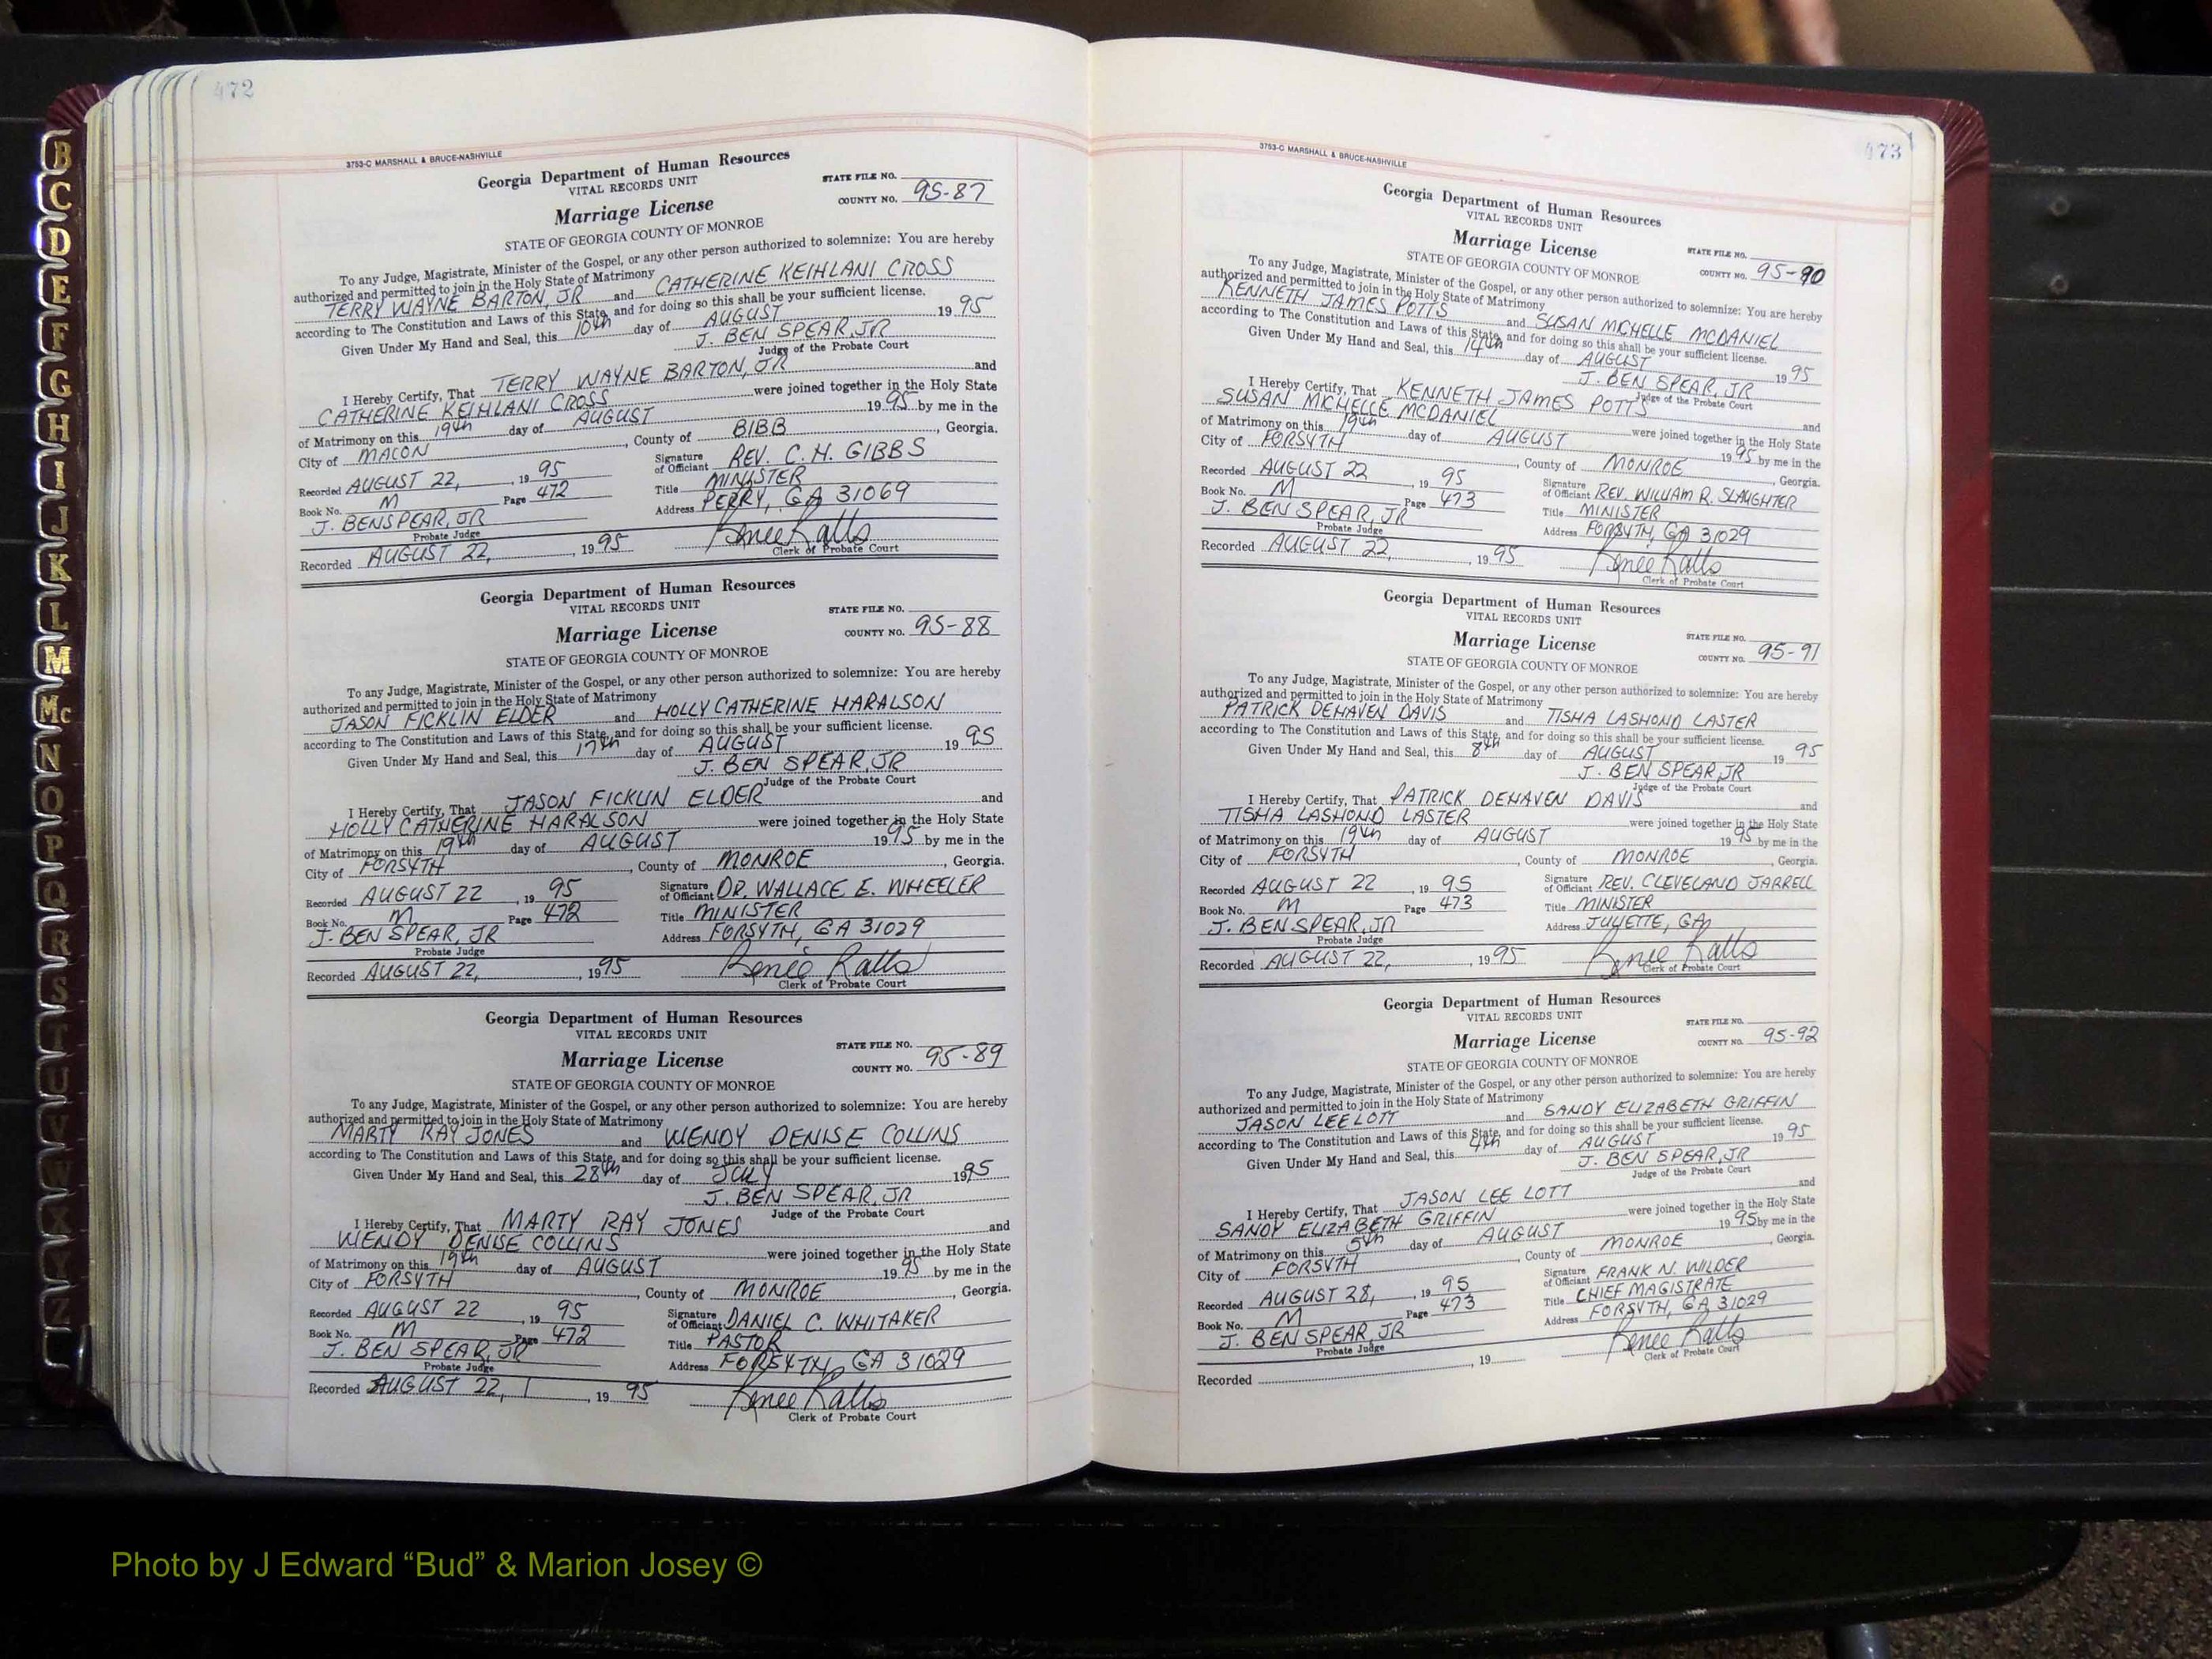 472
3753-C MARSHALL & BRUCE-NASHVILLE
Georgia Department of Human Resources
VITAL RECORDS UNIT
STATE FILE NO.
Marriage License
COUNTY NO. 95-87
STATE OF GEORGIA COUNTY OF MONROE
To any Judge, Magistrate, Minister of the Gospel, or any other person authorized to solemnize: You are hereby
authorized and permitted to join in the Holy State of Matrimony
TERRY WAYNE BARTON, JR and CATHERINE KEIHLANI CROSS
according to The Constitution and Laws of this State, and for doing so this shall be your sufficient license.
Given Under My Hand and Seal, this 10th day of AUGUST 19 95
J. BEN SPEAR, JR
Judge of the Probate Court
I Hereby Certify, That TERRY WAYNE BARTON, JR and
CATHERINE KEIHLANI CROSS were joined together in the Holy State
of Matrimony on this 19th day of AUGUST 19 95 by me in the
City of MACON, County of BIBB, Georgia.
Recorded AUGUST 22, 19 95 Signature of Officiant REV. C. H. GIBBS
Book No. M Page 472 Title MINISTER
J. BEN SPEAR, JR Address PERRY, GA 31069
Probate Judge
Renee Ralls
Recorded AUGUST 22, 19 95 Clerk of Probate Court
Georgia Department of Human Resources
VITAL RECORDS UNIT
STATE FILE NO.
Marriage License
COUNTY NO. 95-88
STATE OF GEORGIA COUNTY OF MONROE
To any Judge, Magistrate, Minister of the Gospel, or any other person authorized to solemnize: You are hereby
authorized and permitted to join in the Holy State of Matrimony
JASON FICKLIN ELDER and HOLLY CATHERINE HARALSON
according to The Constitution and Laws of this State, and for doing so this shall be your sufficient license.
Given Under My Hand and Seal, this 17th day of AUGUST 19 95
J. BEN SPEAR, JR
Judge of the Probate Court
I Hereby Certify, That JASON FICKLIN ELDER and
HOLLY CATHERINE HARALSON were joined together in the Holy State
of Matrimony on this 19th day of AUGUST 19 95 by me in the
City of FORSYTH, County of MONROE, Georgia.
Recorded AUGUST 22, 19 95 Signature of Officiant DR. WALLACE E. WHEELER
Book No. M Page 472 Title MINISTER
J. BEN SPEAR, JR Address FORSYTH, GA 31029
Probate Judge
Renee Ralls
Recorded AUGUST 22, 19 95 Clerk of Probate Court
Georgia Department of Human Resources
VITAL RECORDS UNIT
STATE FILE NO.
Marriage License
COUNTY NO. 95-89
STATE OF GEORGIA COUNTY OF MONROE
To any Judge, Magistrate, Minister of the Gospel, or any other person authorized to solemnize: You are hereby
authorized and permitted to join in the Holy State of Matrimony
MARTY RAY JONES and WENDY DENISE COLLINS
according to The Constitution and Laws of this State, and for doing so this shall be your sufficient license.
Given Under My Hand and Seal, this 28th day of JULY 19 95
J. BEN SPEAR, JR
Judge of the Probate Court
I Hereby Certify, That MARTY RAY JONES and
WENDY DENISE COLLINS were joined together in the Holy State
of Matrimony on this 19th day of AUGUST 19 95 by me in the
City of FORSYTH, County of MONROE, Georgia.
Recorded AUGUST 22, 19 95 Signature of Officiant DANIEL C. WHITAKER
Book No. M Page 472 Title PASTOR
J. BEN SPEAR, JR Address FORSYTH, GA 31029
Probate Judge
Renee Ralls
Recorded AUGUST 22, 19 95 Clerk of Probate Court
473
3753-C MARSHALL & BRUCE-NASHVILLE
Georgia Department of Human Resources
VITAL RECORDS UNIT
Marriage License
STATE FILE NO.
STATE OF GEORGIA COUNTY OF MONROE
COUNTY NO. 95-90
To any Judge, Magistrate, Minister of the Gospel, or any other person authorized to solemnize: You are hereby
authorized and permitted to join in the Holy State of Matrimony
KENNETH JAMES POTTS and SUSAN MICHELLE MCDANIEL
according to The Constitution and Laws of this State, and for doing so this shall be your sufficient license.
Given Under My Hand and Seal, this 14th day of AUGUST 19 95
J. BEN SPEAR, JR
Judge of the Probate Court
I Hereby Certify, That KENNETH JAMES POTTS and
SUSAN MICHELLE MCDANIEL were joined together in the Holy State
of Matrimony on this 19th day of AUGUST 19 95 by me in the
City of FORSYTH, County of MONROE, Georgia.
Recorded AUGUST 22, 19 95 Signature of Officiant REV. WILLIAM R. SLAUGHTER
Book No. M Page 473 Title MINISTER
J. BEN SPEAR, JR Address FORSYTH, GA 31029
Probate Judge
Renee Ralls
Recorded AUGUST 22, 19 95 Clerk of Probate Court
Georgia Department of Human Resources
VITAL RECORDS UNIT
Marriage License
STATE FILE NO.
COUNTY NO. 95-91
STATE OF GEORGIA COUNTY OF MONROE
To any Judge, Magistrate, Minister of the Gospel, or any other person authorized to solemnize: You are hereby
authorized and permitted to join in the Holy State of Matrimony
PATRICK DEHAVEN DAVIS and TISHA LASHOND LASTER
according to The Constitution and Laws of this State, and for doing so this shall be your sufficient license.
Given Under My Hand and Seal, this 8th day of AUGUST 19 95
J. BEN SPEAR, JR
Judge of the Probate Court
I Hereby Certify, That PATRICK DEHAVEN DAVIS and
TISHA LASHOND LASTER were joined together in the Holy State
of Matrimony on this 19th day of AUGUST 19 95 by me in the
City of FORSYTH, County of MONROE, Georgia.
Recorded AUGUST 22, 19 95 Signature of Officiant REV. CLEVELAND JARRELL
Book No. M Page 473 Title MINISTER
J. BEN SPEAR, JR Address JULIETTE, GA
Probate Judge
Renee Ralls
Recorded AUGUST 22, 19 95 Clerk of Probate Court
Georgia Department of Human Resources
VITAL RECORDS UNIT
STATE FILE NO.
Marriage License
COUNTY NO. 95-92
STATE OF GEORGIA COUNTY OF MONROE
To any Judge, Magistrate, Minister of the Gospel, or any other person authorized to solemnize: You are hereby
authorized and permitted to join in the Holy State of Matrimony
JASON LEE LOTT and SANDY ELIZABETH GRIFFIN
according to The Constitution and Laws of this State, and for doing so this shall be your sufficient license.
Given Under My Hand and Seal, this 4th day of AUGUST 19 95
J. BEN SPEAR, JR
Judge of the Probate Court
I Hereby Certify, That JASON LEE LOTT and
SANDY ELIZABETH GRIFFIN were joined together in the Holy State
of Matrimony on this 5th day of AUGUST 19 95 by me in the
City of FORSYTH, County of MONROE, Georgia.
Recorded AUGUST 28, 19 95 Signature of Officiant FRANK N. WILDER
Book No. M Page 473 Title CHIEF MAGISTRATE
J. BEN SPEAR, JR Address FORSYTH, GA 31029
Probate Judge
Renee Ralls
Recorded 19 Clerk of Probate Court
B
C
D
E
F
G
H
I
J
K
L
M
Mc
N
O
P
Q
R
S
T
U
V
W
X
Y
Z
Photo by J Edward “Bud” & Marion Josey ©